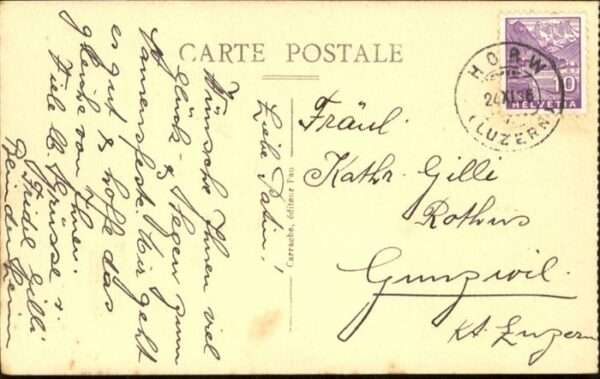 CARTE POSTALE
HORW
24.XI.36
(LUZERN)
10
HELVETIA
Liebe Patin!
Wünsche Ihnen viel
Glück & Segen zum
Namensfeste. Mir geht
es gut & hoffe das
gleiche von Ihnen.
Viele lb. Grüsse v.
Friedel Gilli
Carrache, éditeur Pau
Fräul.
Kathr. Gilli
Rothus
Gunzwil.
Kt. Luzern